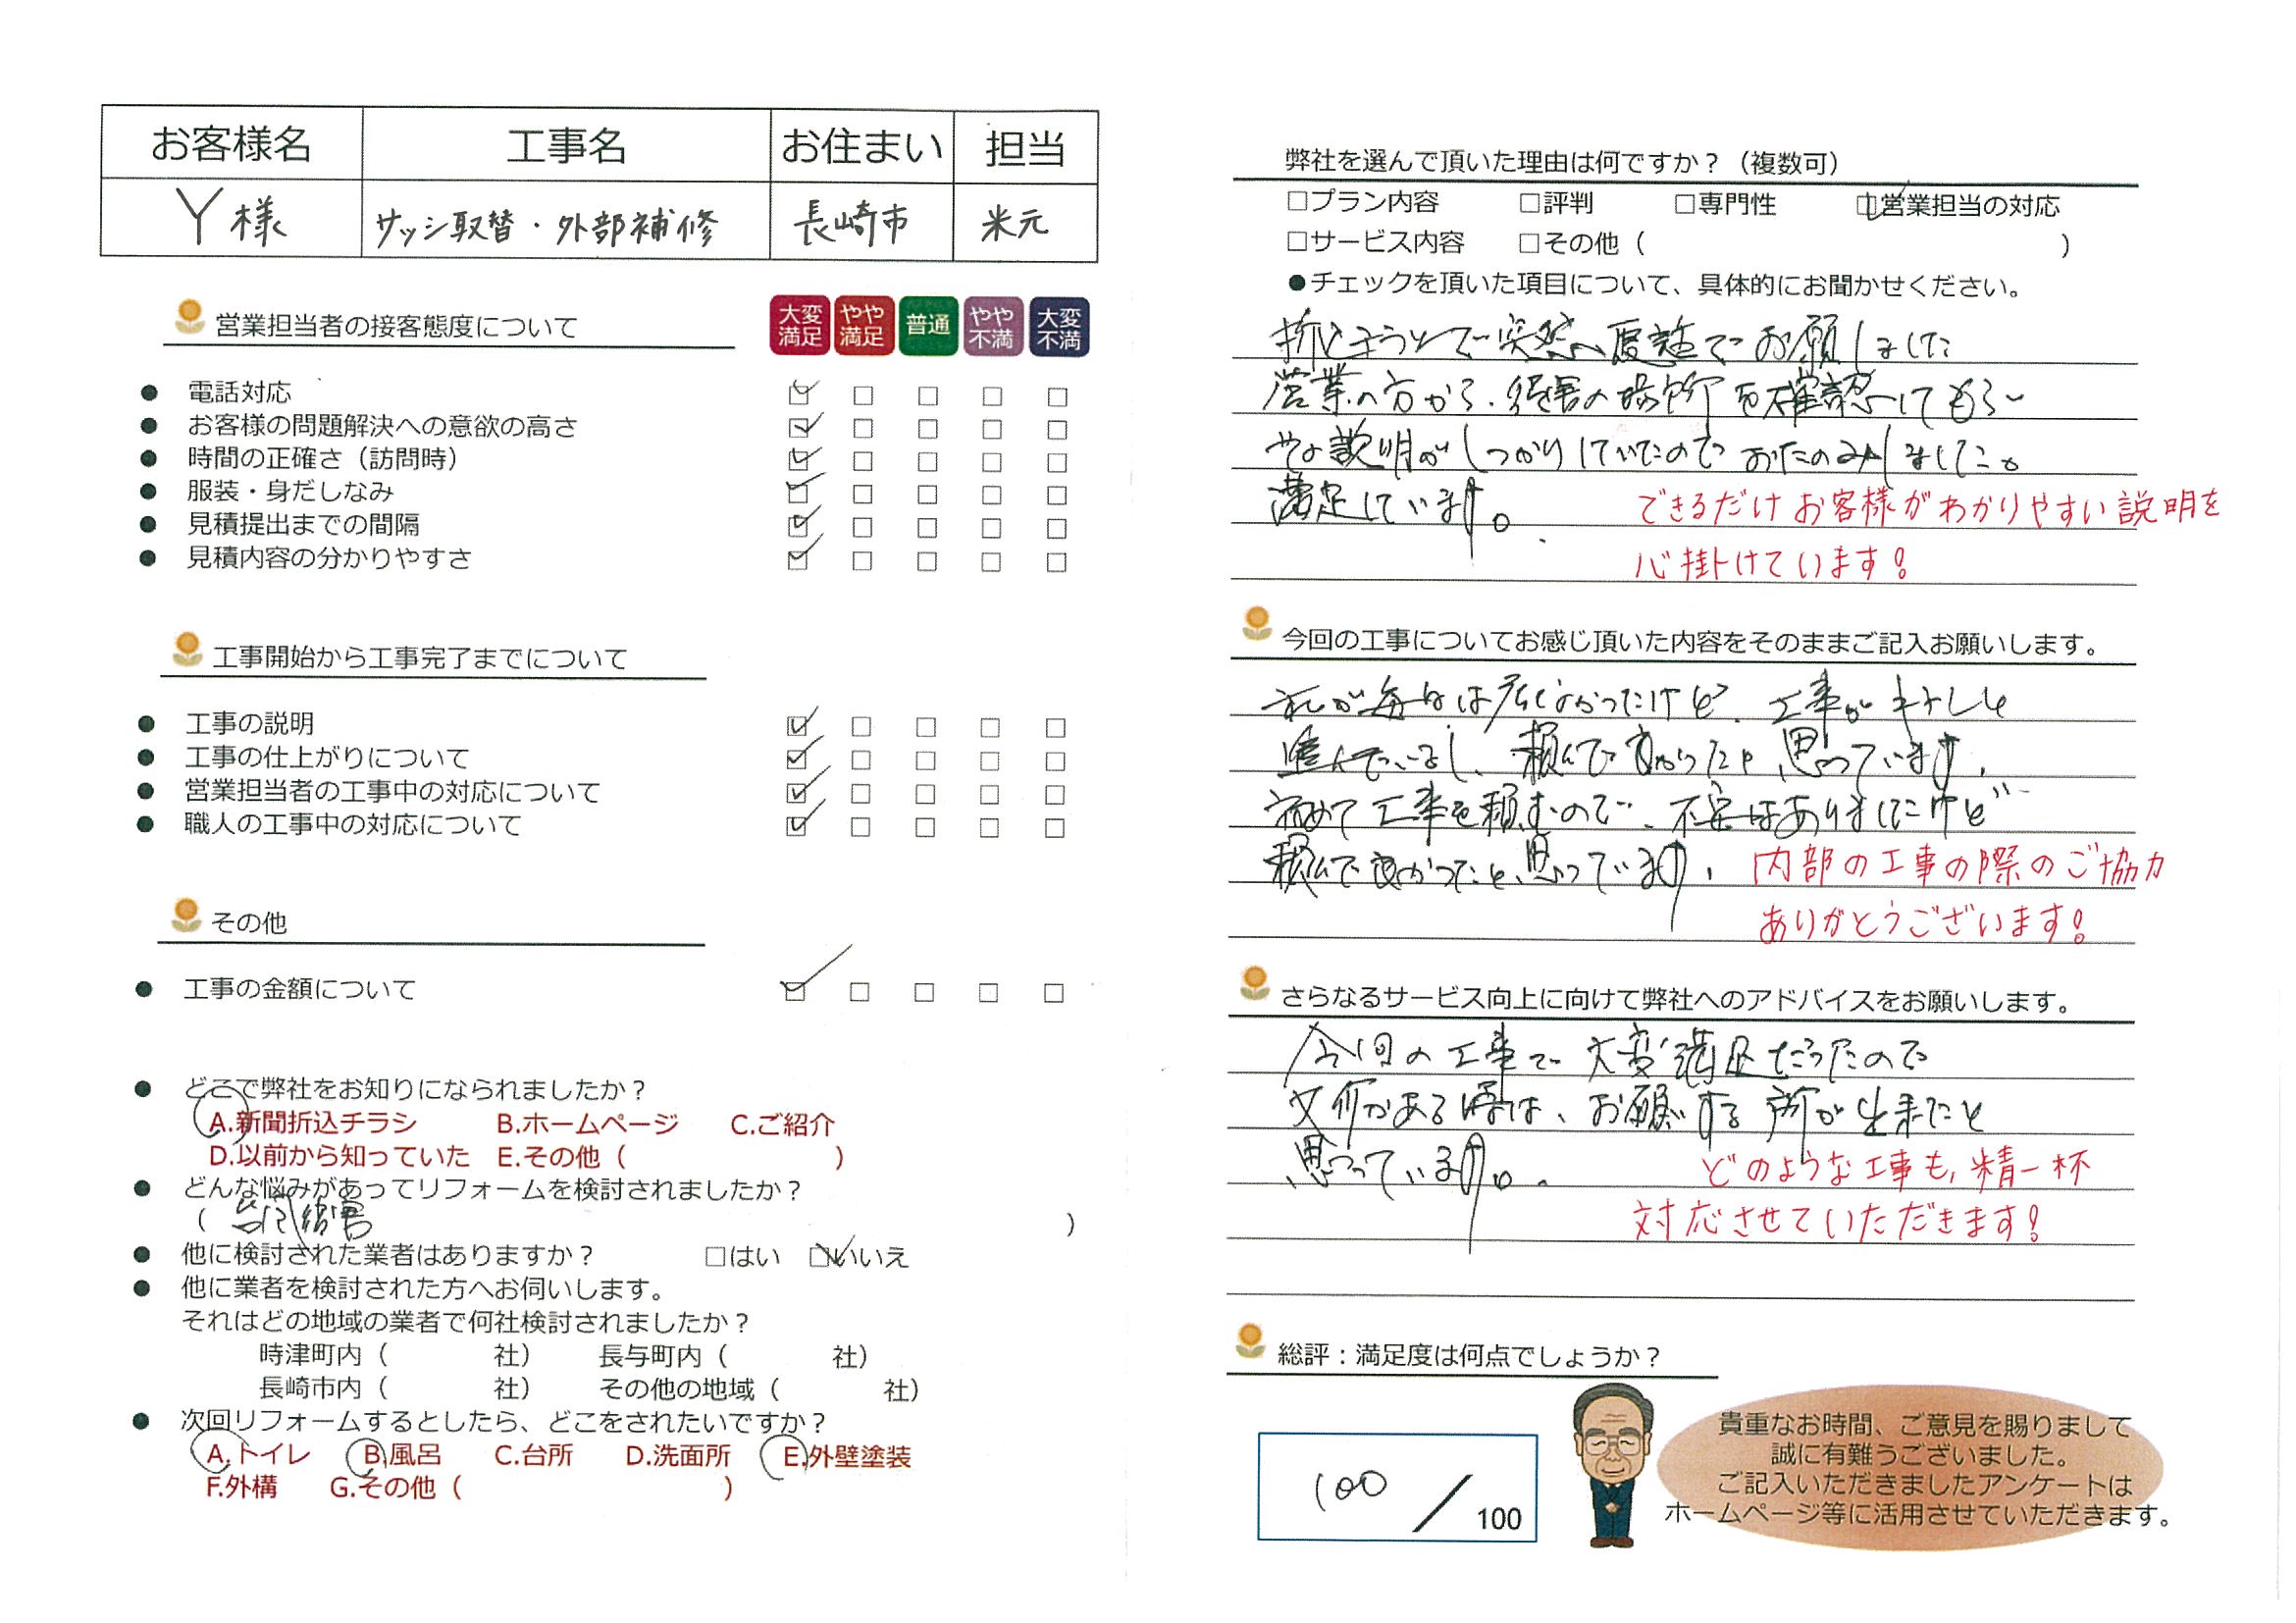 お客様名 工事名 お住まい 担当
Y様 サッシ取替・外部補修 長崎市 米元
営業担当者の接客態度について
大変満足 やや満足 普通 やや不満 大変不満
● 電話対応 ☑ □ □ □ □
● お客様の問題解決への意欲の高さ ☑ □ □ □ □
● 時間の正確さ（訪問時） ☑ □ □ □ □
● 服装・身だしなみ ☑ □ □ □ □
● 見積提出までの間隔 ☑ □ □ □ □
● 見積内容の分かりやすさ ☑ □ □ □ □
工事開始から工事完了までについて
● 工事の説明 ☑ □ □ □ □
● 工事の仕上がりについて ☑ □ □ □ □
● 営業担当者の工事中の対応について ☑ □ □ □ □
● 職人の工事中の対応について ☑ □ □ □ □
その他
● 工事の金額について ☑ □ □ □ □
● どこで弊社をお知りになられましたか？
A.新聞折込チラシ B.ホームページ C.ご紹介
D.以前から知っていた E.その他（ ）
● どんな悩みがあってリフォームを検討されましたか？
（ 台風 害 ）
● 他に検討された業者はありますか？ □はい ☑いいえ
● 他に業者を検討された方へお伺いします。
それはどの地域の業者で何社検討されましたか？
時津町内（ 社） 長与町内（ 社）
長崎市内（ 社） その他の地域（ 社）
● 次回リフォームするとしたら、どこをされたいですか？
A.トイレ B.風呂 C.台所 D.洗面所 E.外壁塗装
F.外構 G.その他（ ）
弊社を選んで頂いた理由は何ですか？（複数可）
□プラン内容 □評判 □専門性 ☑営業担当の対応
□サービス内容 □その他（ ）
●チェックを頂いた項目について、具体的にお聞かせください。
突然 電話でお願しました
営業の方から、 害の場所を確認してもらい
説明がしっかりしていたので おたのみしました。
満足しています。
できるだけお客様がわかりやすい説明を
心掛けています！
今回の工事についてお感じ頂いた内容をそのままご記入お願いします。
なかったけど、工事が
進んでいるし、頼んで良かったと思っています。
初めて工事を頼むので、不安はありましたけど
頼んで良かったと思っています。
内部の工事の際のご協力
ありがとうございます！
さらなるサービス向上に向けて弊社へのアドバイスをお願いします。
今回の工事で大変満足だったので
又何かある際は、お願いする所が出来たと
思っています。
どのような工事も、精一杯
対応させていただきます！
総評：満足度は何点でしょうか？
100／100
貴重なお時間、ご意見を賜りまして
誠に有難うございました。
ご記入いただきましたアンケートは
ホームページ等に活用させていただきます。